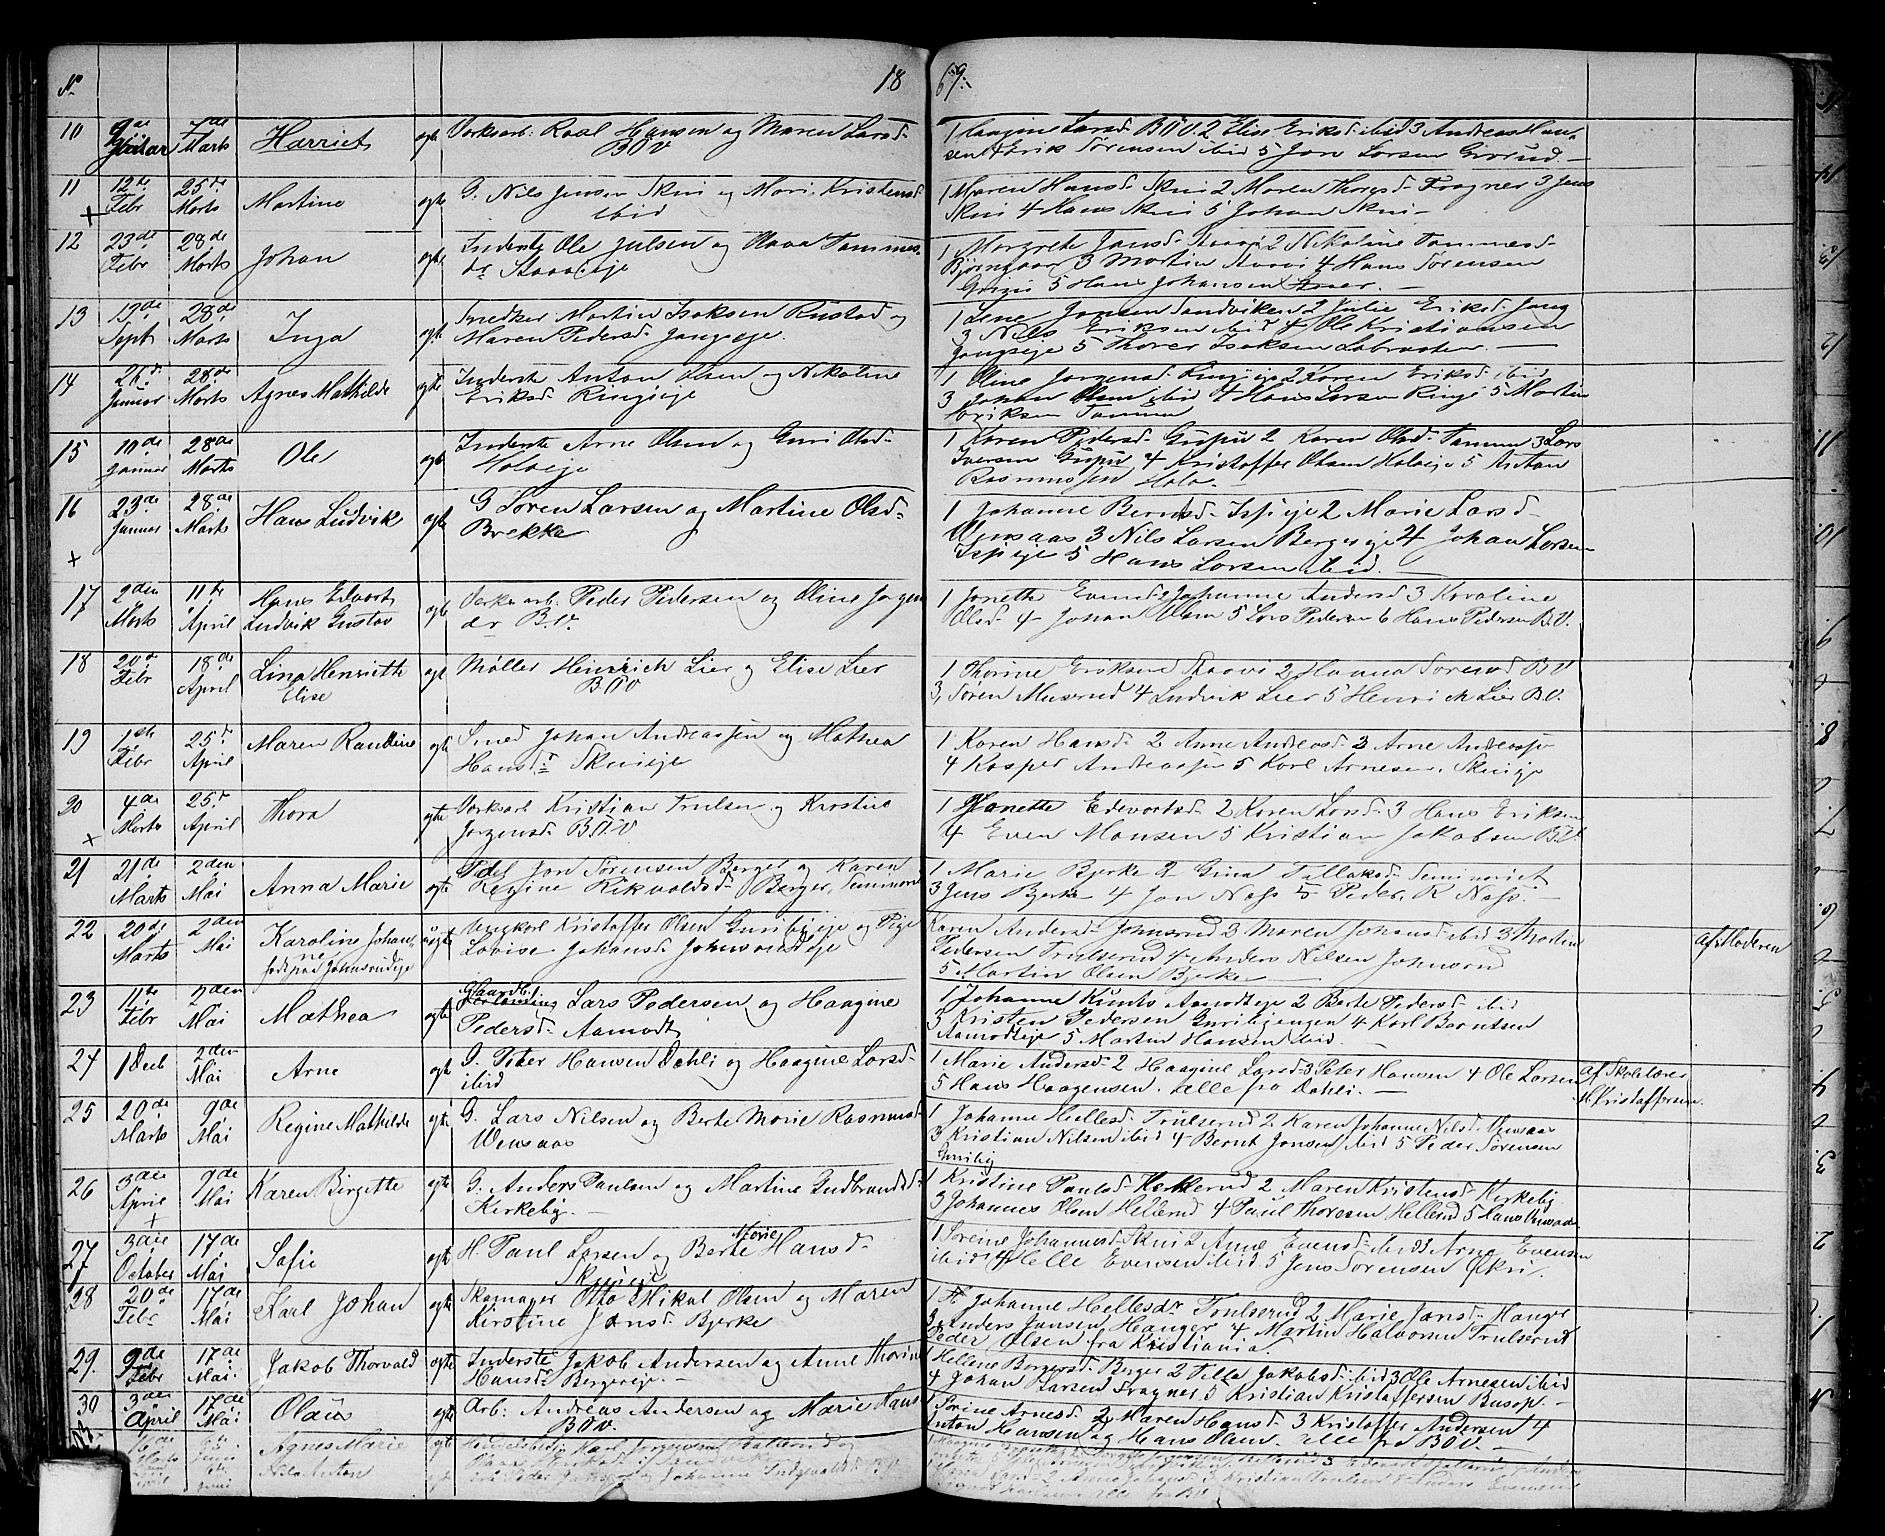 N 18 69.
10 9de Januar 7de Marts Harriet ægte Værksarb. Roal Hansen og Maren Larsd. BÖV
1 Haagine Larsd. BÖV. 2 Elise Eriksd. ibid 3 Andreas Han-
sen 4 Erik Sørensen ibid 5 Jon Larsen
11 12de Febr 25de Marts Martine ægte G. Nils Jensen Skui og Mari Kristensd. ibid
1 Maren Hansd. Skui 2 Maren Thorsd. Tragner 3 Jens
Skui 4 Hans Skui 5 Johan Skui
12 23de Febr 28de Marts Johan ægte Inderste Ole Julsen og Olava Tammes-
dr
1 Margrete Jansd. Staavi 2 Nikoline Tammesd.
3 Martin Staavi 4 Hans Sørensen
5 Hans Johansen
13 19de Sept 28de Marts Inga ægte Snedker Martin Isaksen Rustad og
Maren Pedersd. Jongseje.
1 Lene Jonsen Sandviken 2 Julie Eriksd. Jong
3 Nils Eriksen ibid 4 Ole Kristiansen
Jongseje 5 Thorer Isaksen Labraaten.
14 27de Januar 28de Marts Agnes Mathilde ægte Inderste Anton Olsen og Nikoline
Eriksd. Ringieje
1 Oline Jørgensd. Ringieje 2 Karen Eriksd. ibid
3 Johan Olsen ibid 4 Hans Larsen Ringi 5 Martin
Eriksen Tanum
15 10de Januar 28de Marts Ole ægte Inderste Arne Olsen og Guri Olsd.
Holoeje
1 Karen Pedersd. 2 Karen Olsd. Tanum 3 Lars
Iversen 4 Kristoffer Olsen Holoeje 5 Anton
Rasmussen Holo.
16 23de Januar 28de Marts Hans Ludvik ægte G Søren Larsen og Martine Olsd.
Brekke
1 Johanne Berntsd. Ispieje 2 Marie Larsd.
Wensaas 3 Nils Larsen Bergeseje 4 Johan Larsen
Ispieje 5 Hans Larsen ibid.
17 2den Marts 11te April Hans Edvart
Ludvik Gustav ægte Værksarb. Peder Pedersen og Oline Jørgens-
dr B.V.
1 Jonette Evensd. 2 Johanne Andersd. 3 Karoline
Olsd. 4 Johan Olsen 5 Lars Pedersen 6 Hans Pedersen B.V.
18 20de Febr 18de April Lina Henriette
Elise ægte Møller Heinrich Lier og Elise Lier
BÖV
1 Thorine Eriksen Staavi 2 Hanna Sørensd. BV
3, Søren Muserud 4 Ludvik Lier 5 Henrich Lier B.V.
19 1ste Febr 25de April Maren Randine ægte Smed Johan Andreassen og Mathea
Hansd. Skuieje
1 Karen Hansd. 2 Anne Andreasd. 3 Arne Andreassen
4 Kasper Andreassen 5 Karl Arnesen. Skuieje
20 4de Marts 25de April Thora ægte Værksarb. Kristian Trulsen og Kristine
Jørgensd. BÖV
1 Jonette Edevartsd. 2 Karen Larsd. 3 Hans Eriksen
4 Even Hansen 5 Kristian Jakobsen B.V.
21 21de Marts 2den Mai Anna Marie ægte Pdes Jon Sørensen Berger og Karen
Regine Rikvoldsd. Berger,
1 Marie Bjerke 2 Gina Tollaksd. Seminariet
3 Jens Bjerke 4 Jon Næss 5 Peder. R Næss.
22 20de Marts 2den Mai Karoline Johan-
ne
født paa Johnsrudeje uægte Ungkarl Kristoffer Olsen Guribyeje og Pige
Lovise Johansd. Johnsrudeje
Karen Andersd. Johnsrud 2 Maren Johansd. ibid 3 Morten
Pedersen Trulserud 4 Anders Nilsen Johnsrud
5 Martin Olsen Bjerke
af Moderen
23 11te Febr 2den Mai Mathea ægte Gaardb. Lars Pedersen og Haagine
Pedersd. Aamodt
1 Johanne Knuts. Aamodteje 2 Berte Pedersd. ibid
3 Kristen Pedersen Guribyengen 4 Karl Berntsen
Aamodteje 5 Martin Hansen ibid.
24 1 Decb 2den Mai Arne ægte G. Peter Hansen Dæhli og Haagine Larsd.
ibid
1 Marie Andersd. 2 Haagine Larsd. 3 Peter Hansen 4 Ole Larsen
5 Hans Haagensen. alle fra Dæhli.
af Skolelærer
Kristoffersen
25 20de Marts 9de Mai Regine Mathilde ægte G. Lars Nilsen og Berte Marie Rasmusd.
Wensaas
1 Johanne Hellesd. Trulserud 2 Karen Johanne Nilsd. Wensaas
3 Kristian Nilsen ibid 4 Bernt Jonsen ibid 5 Peder Sørensen
Guriby
26 3die April 9de Mai Karen Birgette ægte G. Anders Paulsen og Martine Gudbrandsd.
Kirkeby.
1 Kristine Paulsd. Hellerud 2 Maren Kristensd. Kirkeby
3 Johannes Olsen Hellerud 4 Paul Thoresen Hellerud 5 Hans Wensaas
27 3die October 17de Mai Sofie ægte H. Paul Larsen og Berte Marie Hansd.
Skuieje
1 Sørine Johannesd. Skui 2 Anne Evensd. ibid 3 Arne Evensen
ibid 4 Helle Evensen ibid. 5 Jens Sørensen Økri.
28 20de Febr 17de Mai Karl Johan ægte Skomager Otto Mikal Olsen og Maren
Kirstine Jonsd. Bjerke
1 Johanne Hellesdr Trulserud 2 Marie Jansd. Hanger
3 Anders Jansen Hanger 4 Martin Halvorsen Trulserud
Peder Olsen fra Kristiania.
29. 9de Febr 17de Mai. Jakob Thorvald ægte Inderste Jakob Andersen og Anne Thorine
Hansd. Bergereje.
1 Hellene Borgersd. Berger 2 Jakobsd. ibid 3 Ole Arnesen ibid
4 Johan Larsen Tragner 5 Kristian Kristoffersen Busop.
30 3die April 17de Mai Olaus ægte Arb: Andreas Andersen og Marie Hans
BÖV.
1 Sørine Arnesd. 2 Maren Hansd. 3 Kristoffer Andersen 4
Anton Hansen og Hans Olsen. alle fra BÖV.
Agnes Marie ægte
Nils Anton